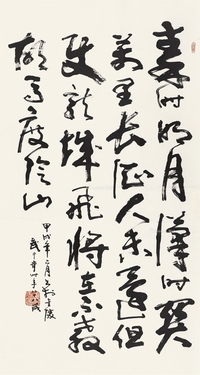 秦時明月漢時關
萬里長征人未還但
使龍城飛將在不教
胡馬度陰山
甲戌年二月書於金陵
武中奇